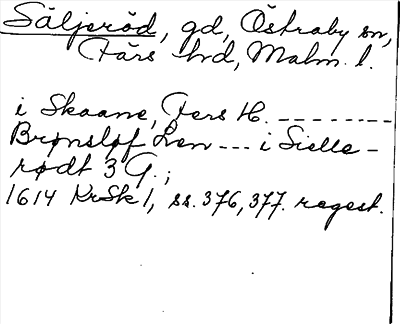 Säljeröd, gd, Östraby sn,
Färs hd, Malm. l.
i Skaane, Fers H. --------
Brønsløf Len --- i Sielle-
rødt 3 G.;
1614 KrSk 1, ss. 376, 377. regest.